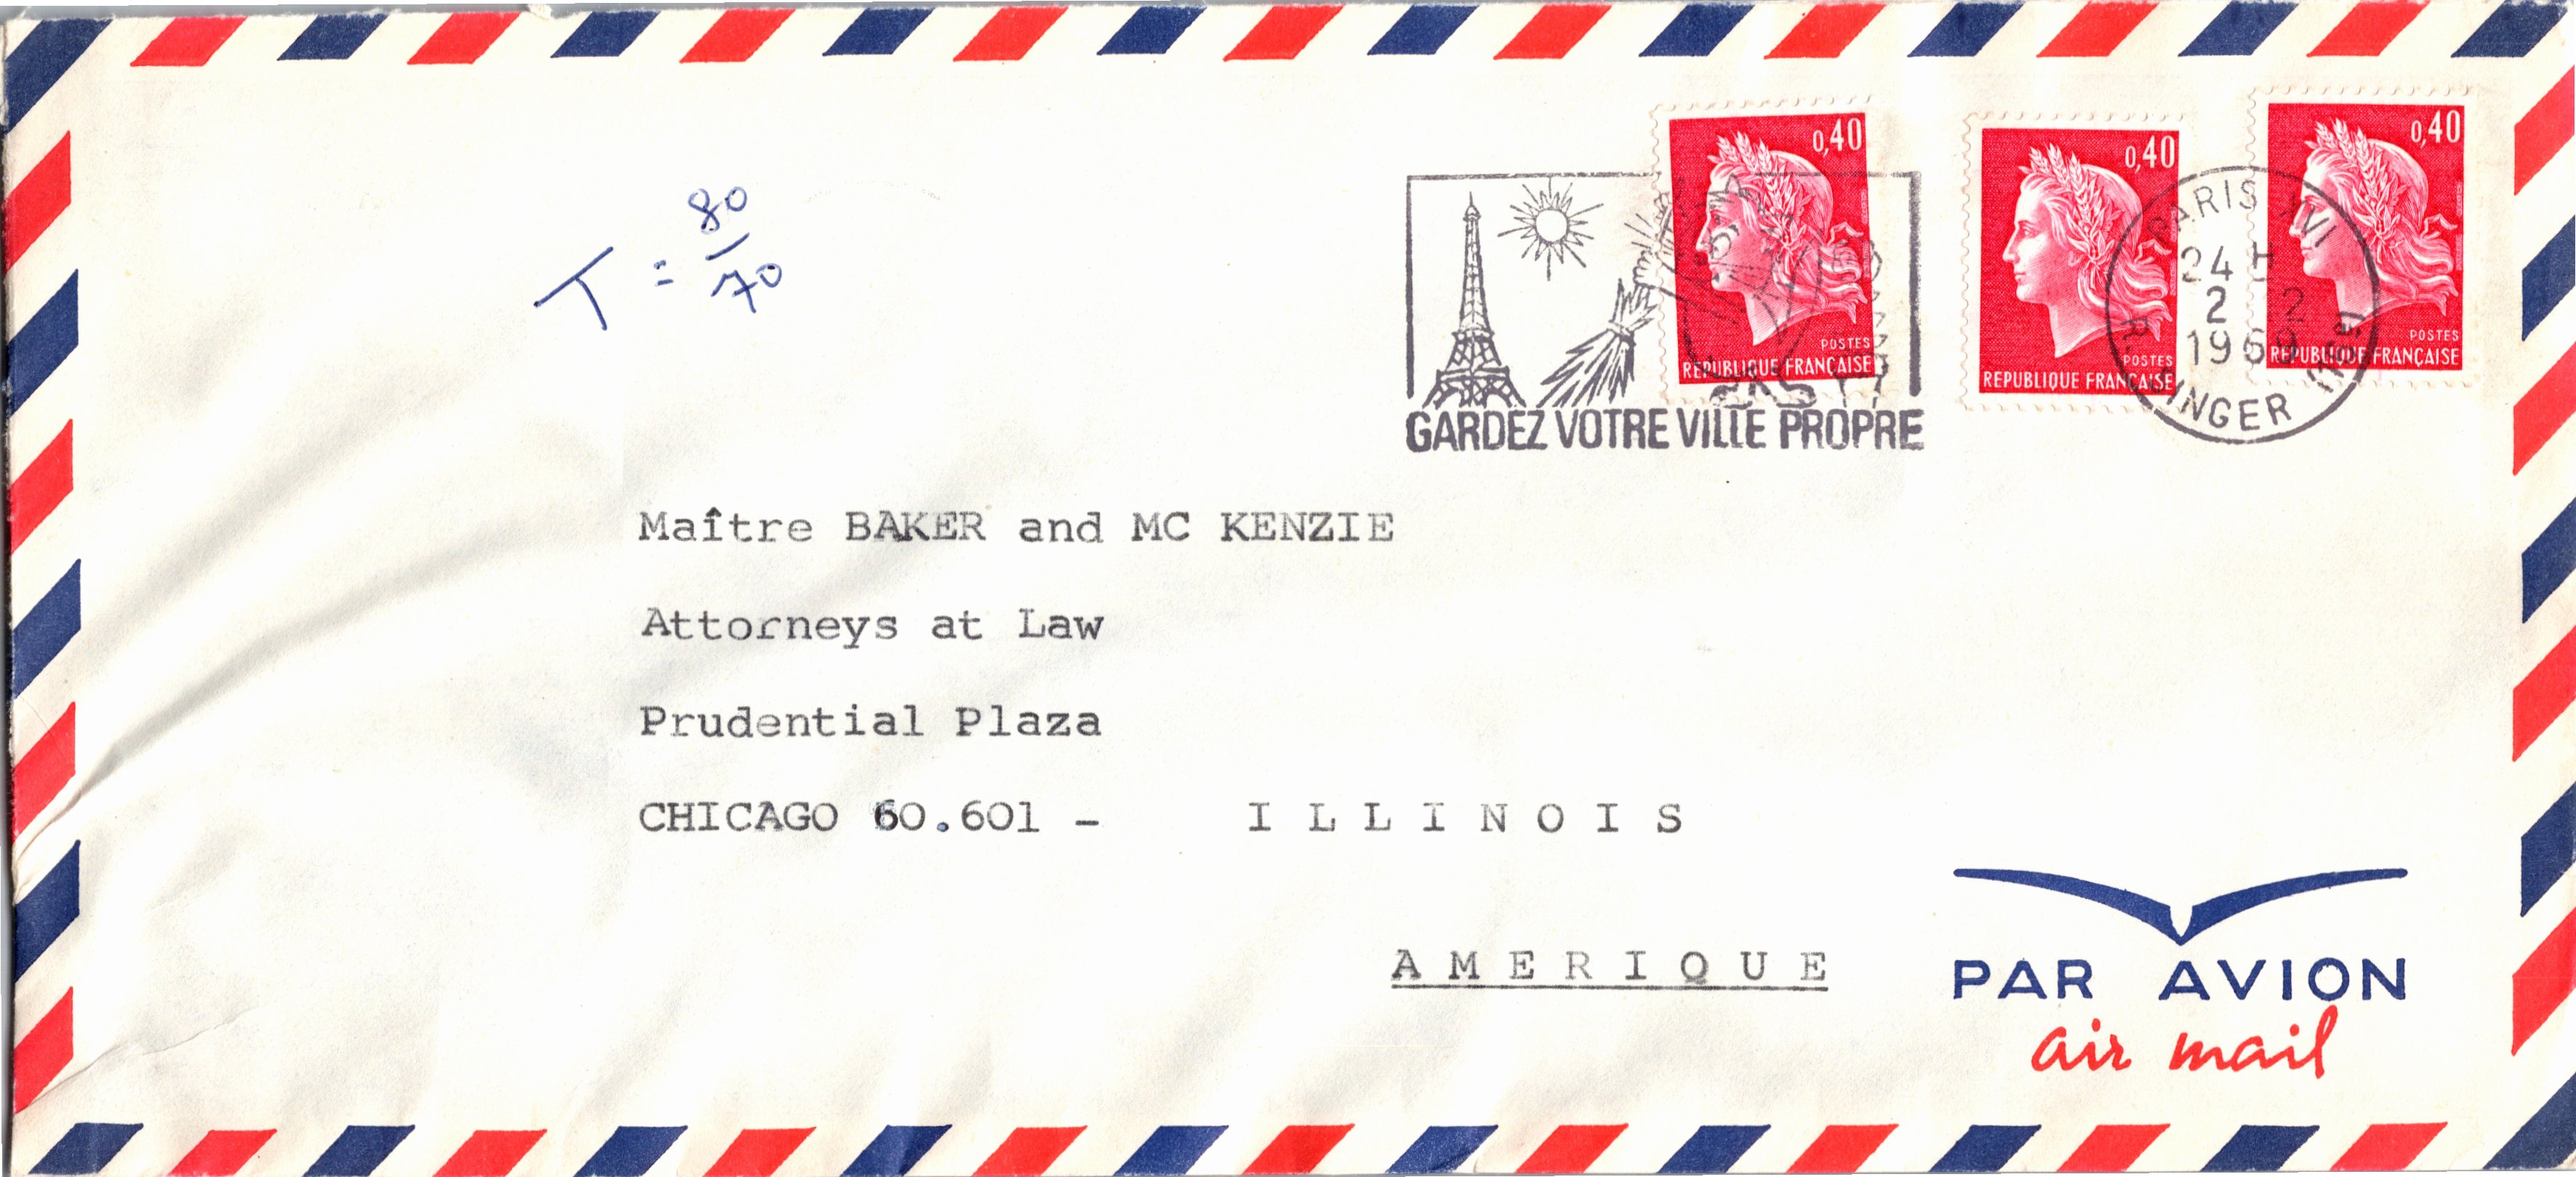 T = 80/70
0,40
POSTES
REPUBLIQUE FRANÇAISE
0,40
POSTES
REPUBLIQUE FRANÇAISE
0,40
POSTES
REPUBLIQUE FRANÇAISE
PARIS XVI
24 H
2 2
1969
R. SINGER (16e)
GARDEZ VOTRE VILLE PROPRE
Maître BAKER and MC KENZIE
Attorneys at Law
Prudential Plaza
CHICAGO 60.601 - ILLINOIS
AMERIQUE
PAR AVION
air mail